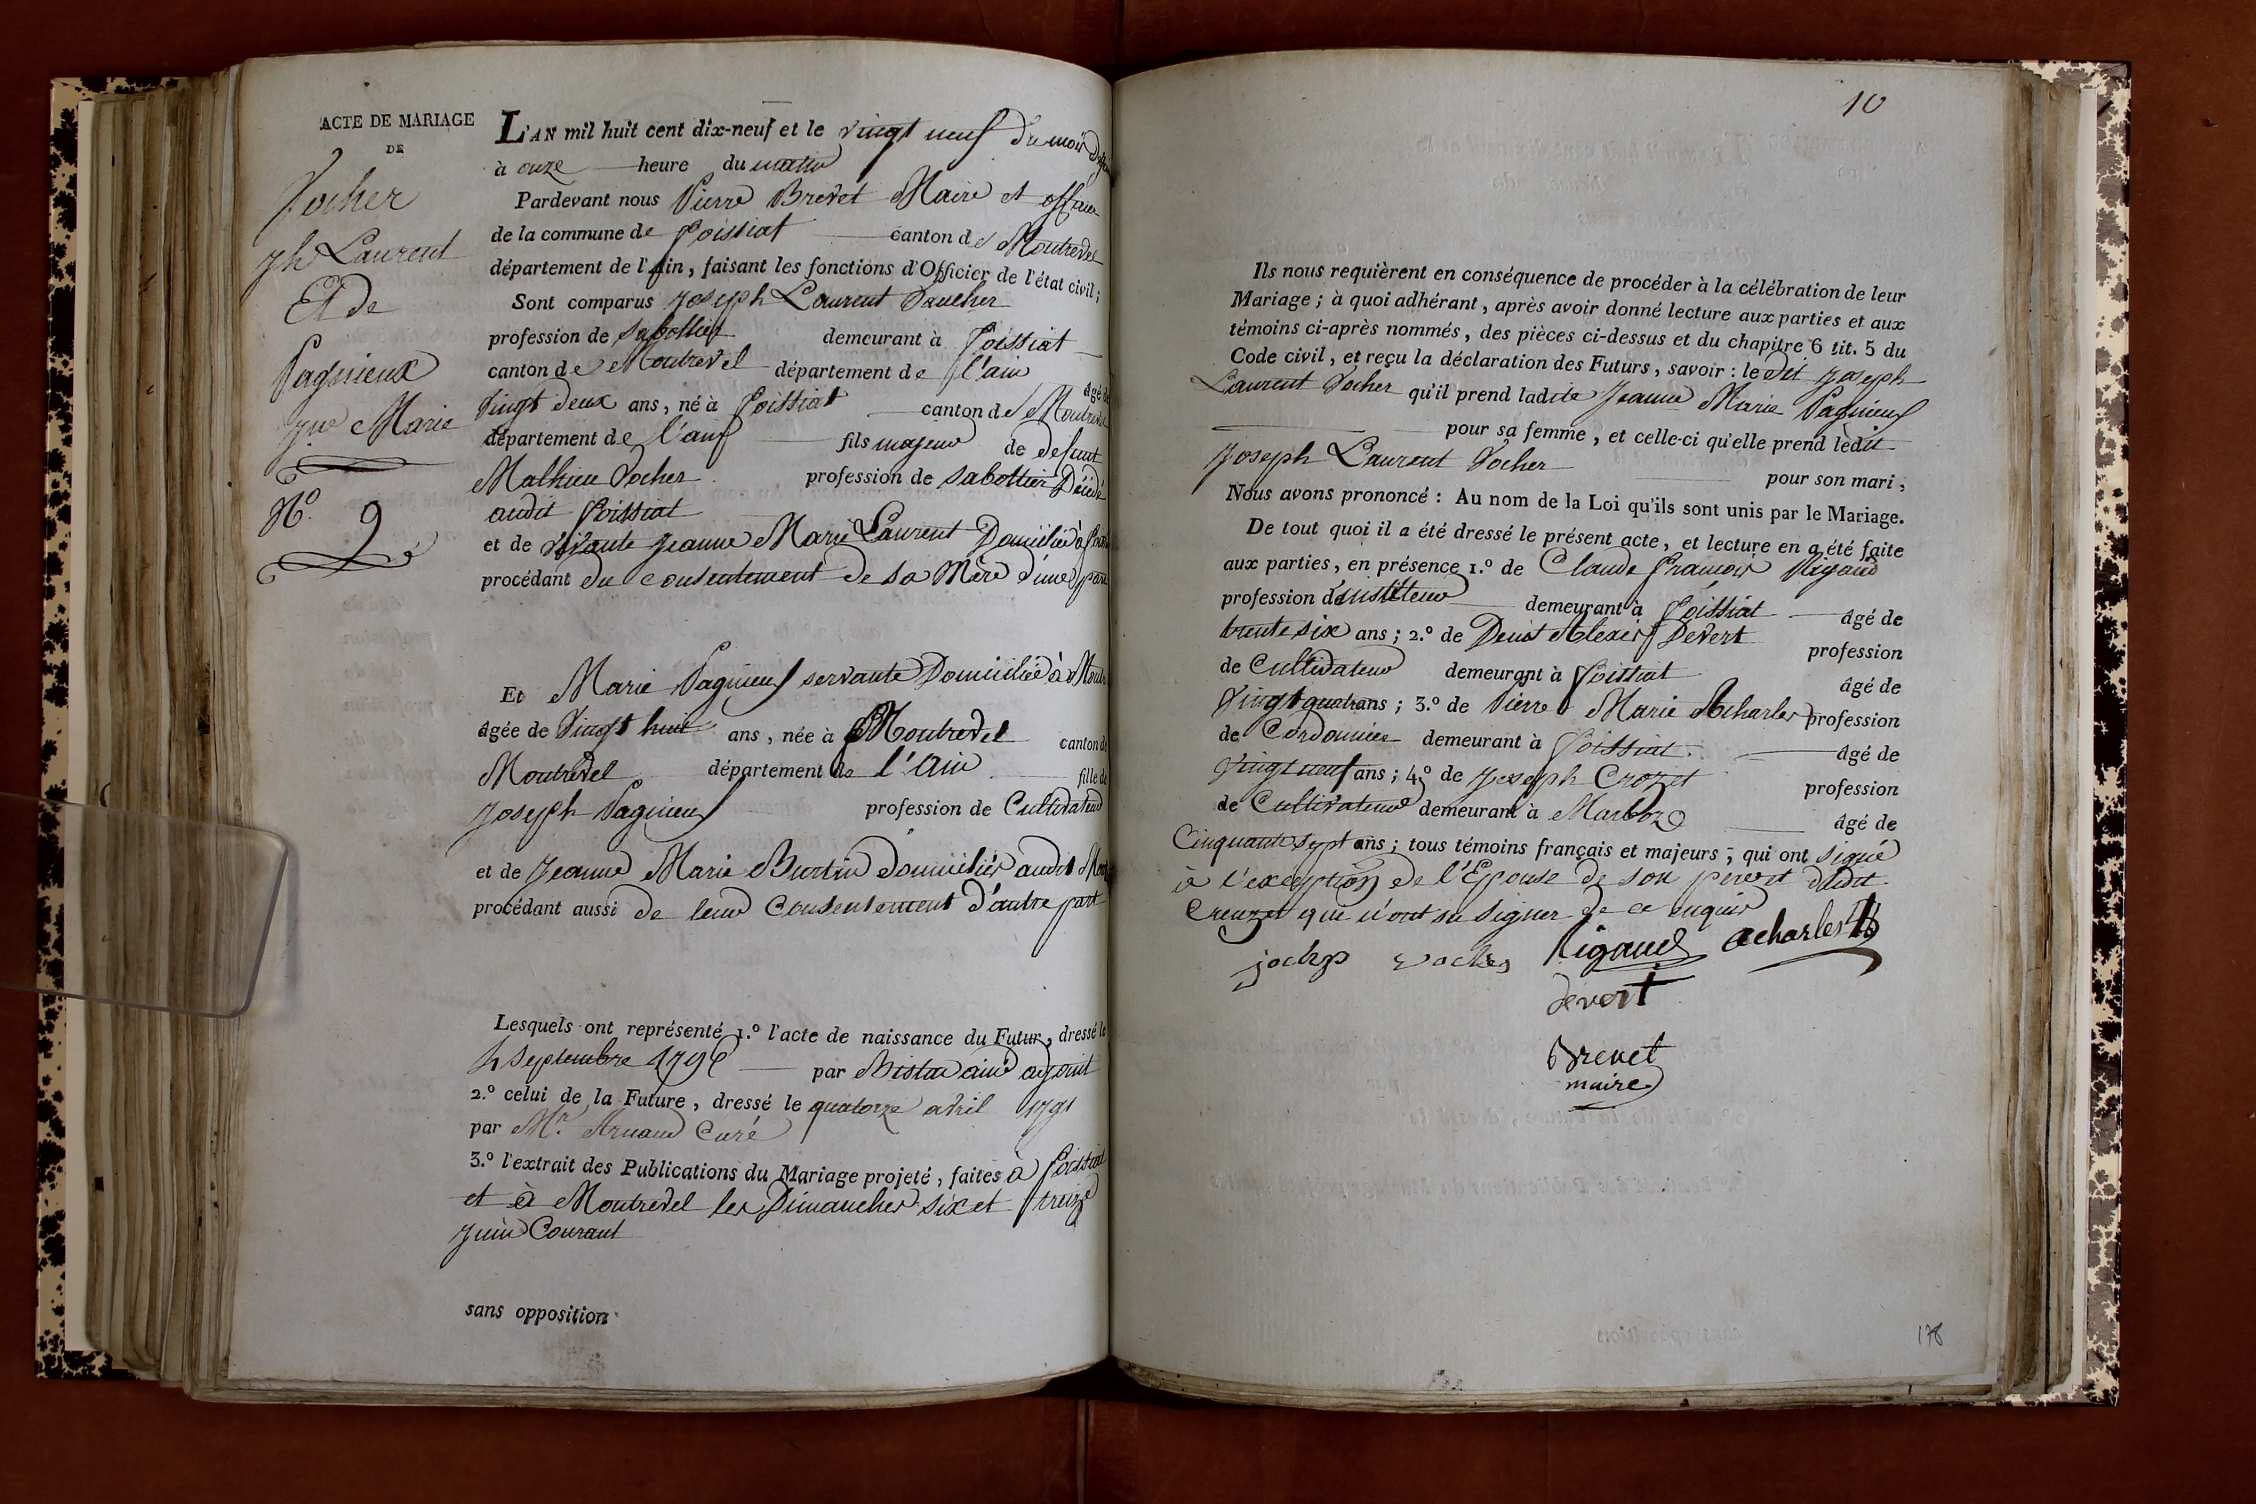 ACTE DE MARIAGE
DE
Vocher
Jh Laurent
Et de
Pagnieux
Jne Marie
N.o 9
L'AN mil huit cent dix-neuf et le vingt neuf du mois de
à onze heure du matin
Pardevant nous Pierre Brevet Maire et officier
de la commune de Foissiat canton de Montrevel
département de l'Ain, faisant les fonctions d'Officier de l'état civil;
Sont comparus Joseph Laurent Vaucher
profession de sabottier demeurant à Foissiat
canton de Montrevel département de l'ain âgé de
vingt deux ans, né à Foissiat canton de Montrevel
département de l'ain fils majeur de defunt
Mathieu Vocher profession de sabottier Décédé
audit Foissiat
et de vivante Jeanne Marie Laurent Domiciliée à
procédant du consentement de sa Mère d'une part
Et Marie Pagnieux servante Domiciliée à
âgée de vingt huit ans, née à Montrevel canton de
Montrevel département de l'Ain fille de
Joseph Pagnieux profession de Cultivateur
et de Jeanne Marie Burtin domiciliés audit
procédant aussi de leur Consentement d'autre part
Lesquels ont représenté 1.o l'acte de naissance du Futur, dressé le
4 Septembre par ainé adjoint
2.o celui de la Future, dressé le quatorze avril 1791
par Mr. Arnaud Curé
3.o l'extrait des Publications du Mariage projeté, faites à Foissiat
et à Montrevel les Dimanches six et treize
Juin Courant
sans opposition
10
Ils nous requièrent en conséquence de procéder à la célébration de leur
Mariage; à quoi adhérant, après avoir donné lecture aux parties et aux
témoins ci-après nommés, des pièces ci-dessus et du chapitre 6 tit. 5 du
Code civil, et reçu la déclaration des Futurs, savoir: le dit Joseph
Laurent Vocher qu'il prend ladite Jeanne Marie Pagnieux
pour sa femme, et celle-ci qu'elle prend lèdit
Joseph Laurent Vocher pour son mari,
Nous avons prononcé: Au nom de la Loi qu'ils sont unis par le Mariage.
De tout quoi il a été dressé le présent acte, et lecture en a été faite
aux parties, en présence 1.o de Claude François Rigaud
profession d'instituteur demeurant à Foissiat âgé de
trente six ans; 2.o de Denis Alexis Devert profession
de Cultivateur demeurant à Foissiat âgé de
vingt quatre ans; 3.o de Pierre Marie Acharles profession
de Cordonnier demeurant à Foissiat âgé de
vingt neuf ans; 4.o de Joseph Crozet profession
de Cultivateur demeurant à Marboz âgé de
Cinquante sept ans; tous témoins français et majeurs, qui ont signé
à l'exception de l'Epouse de son père et dudit
Creuzet que n'ont su signer de ce enquis
Rigaud acharles
devert
Brevet
maire
178